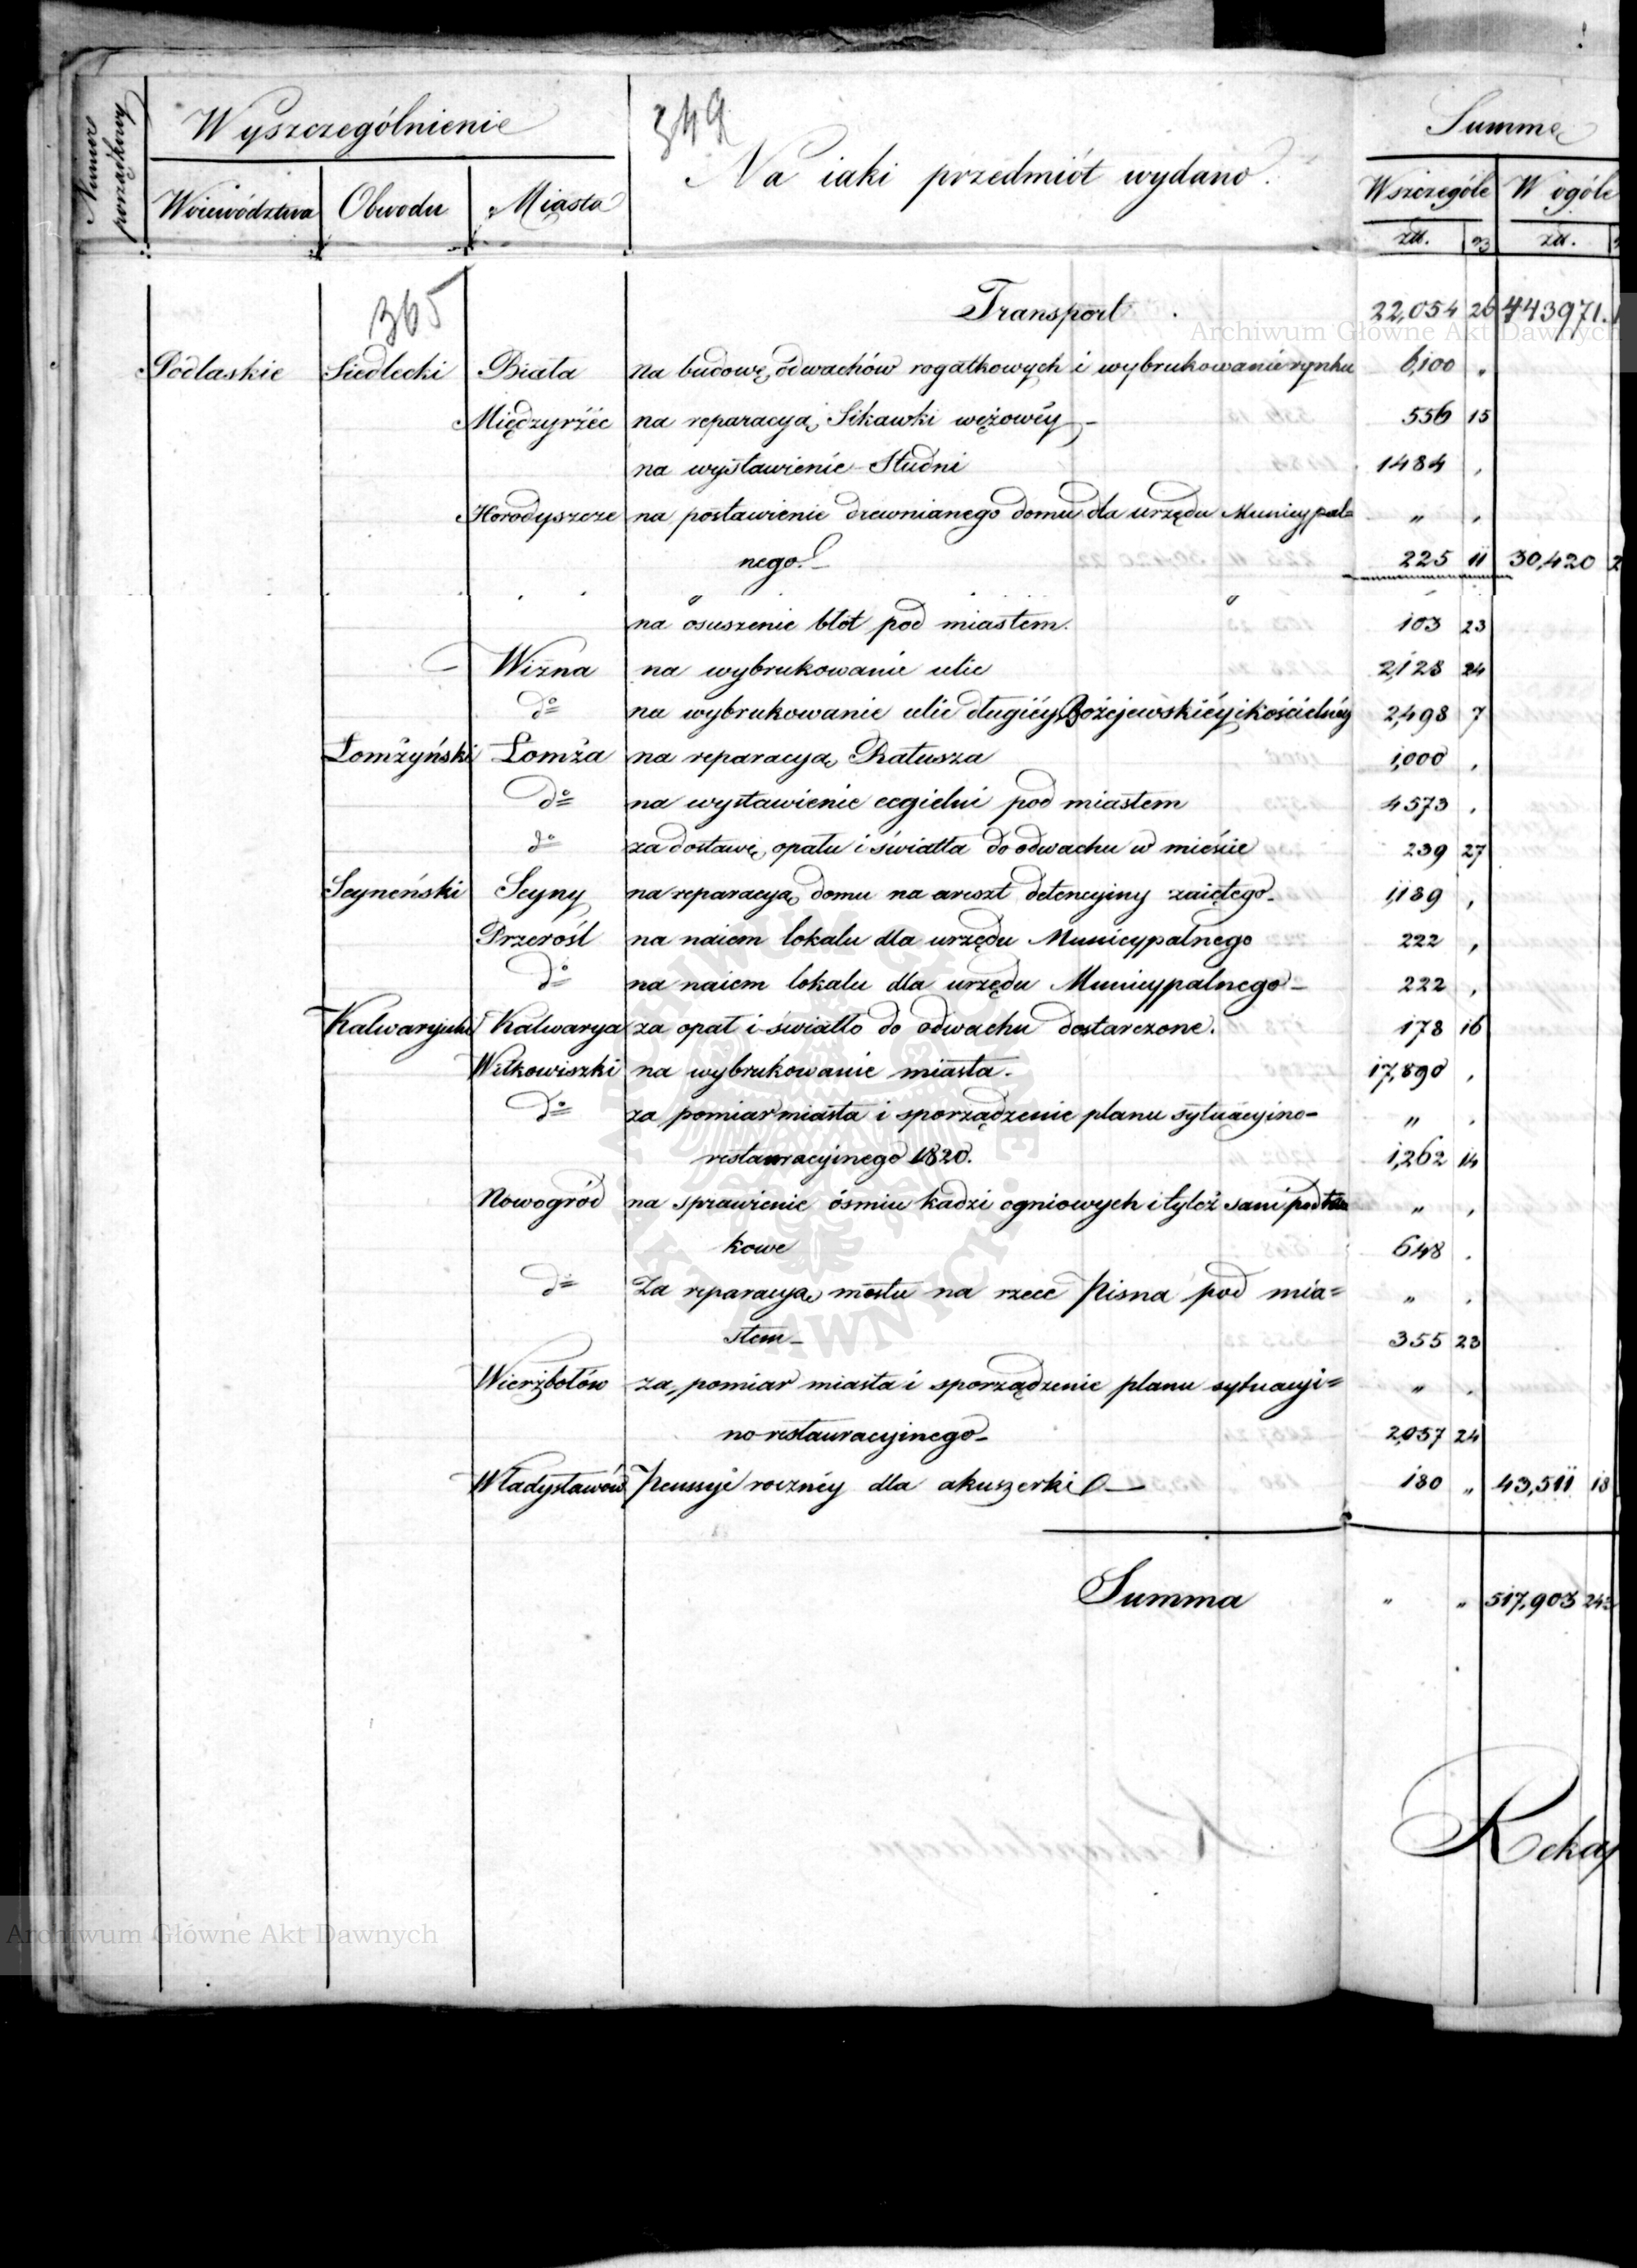 Numer porządkowy
Wyszczególnienie
349
Summa
Na iaki przedmiót wydano.
Województwa Obwodu Miasta
Wszczególe W ogóle
zł. gr zł.
365
Transport 22,054 26 443971.
Archiwum Główne Akt Dawnych
Podlaskie Siedlecki Biała na budowę odwachów rogatkowych i wybrukowanie rynku 6,100 "
Międzyrzéc na reparacyą Sikawki wężowéy - 556 15
na wystawienie Studni 1484 ,
Horodyszcze na postawienie drewnianego domu dla urzędu Municypal= " ,
nego. 225 11 30,420 2
na osuszenie błót pod miastem. 103 23
Wizna na wybrukowanie ulic 2,128 24
do na wybrukowanie ulic długiéy, Bożejewskiéy i kościelnéy 2,498 7
Łomżyński Łomża na reparacyą Ratusza 1,000 ,
do na wystawienie cegielni pod miastem 4573 ,
do za dostawę opału i światła do odwachu w mieście 239 27
Seyneński Seyny na reparacyą domu na areszt detencyiny zaiętego 1,189 ,
Przerośl na naiem lokalu dla urzędu Municypalnego 222 ,
do na naiem lokalu dla urzędu Municypalnego - 222 ,
Kalwaryiski Kalwarya za opał i światło do odwachu dostarczone. 178 16
Wiłkowiszki na wybrukowanie miasta. 17,890 ,
do za pomiar miasta i sporządzenie planu sytuacyino- " ,
restauracyinego 1820. 1,262 14
Nowogród na sprawienie ośmiu kadzi ogniowych i tyloż sani pod ta " ,
kowe 648 .
do Za reparacyą mostu na rzece Pisna pod mia= " .
stem - 355 23
Wierzbołów za pomiar miasta i sporządzenie planu sytuacyi= " .
no restauracyinego - 2,057 24
Władysławów Pensyi roczney dla akuszerki 180 " 43,511 18
Summa " " 517,903 24
Rekap
Archiwum Główne Akt Dawnych
ARCHIWUM GŁÓWNE AKT DAWNYCH